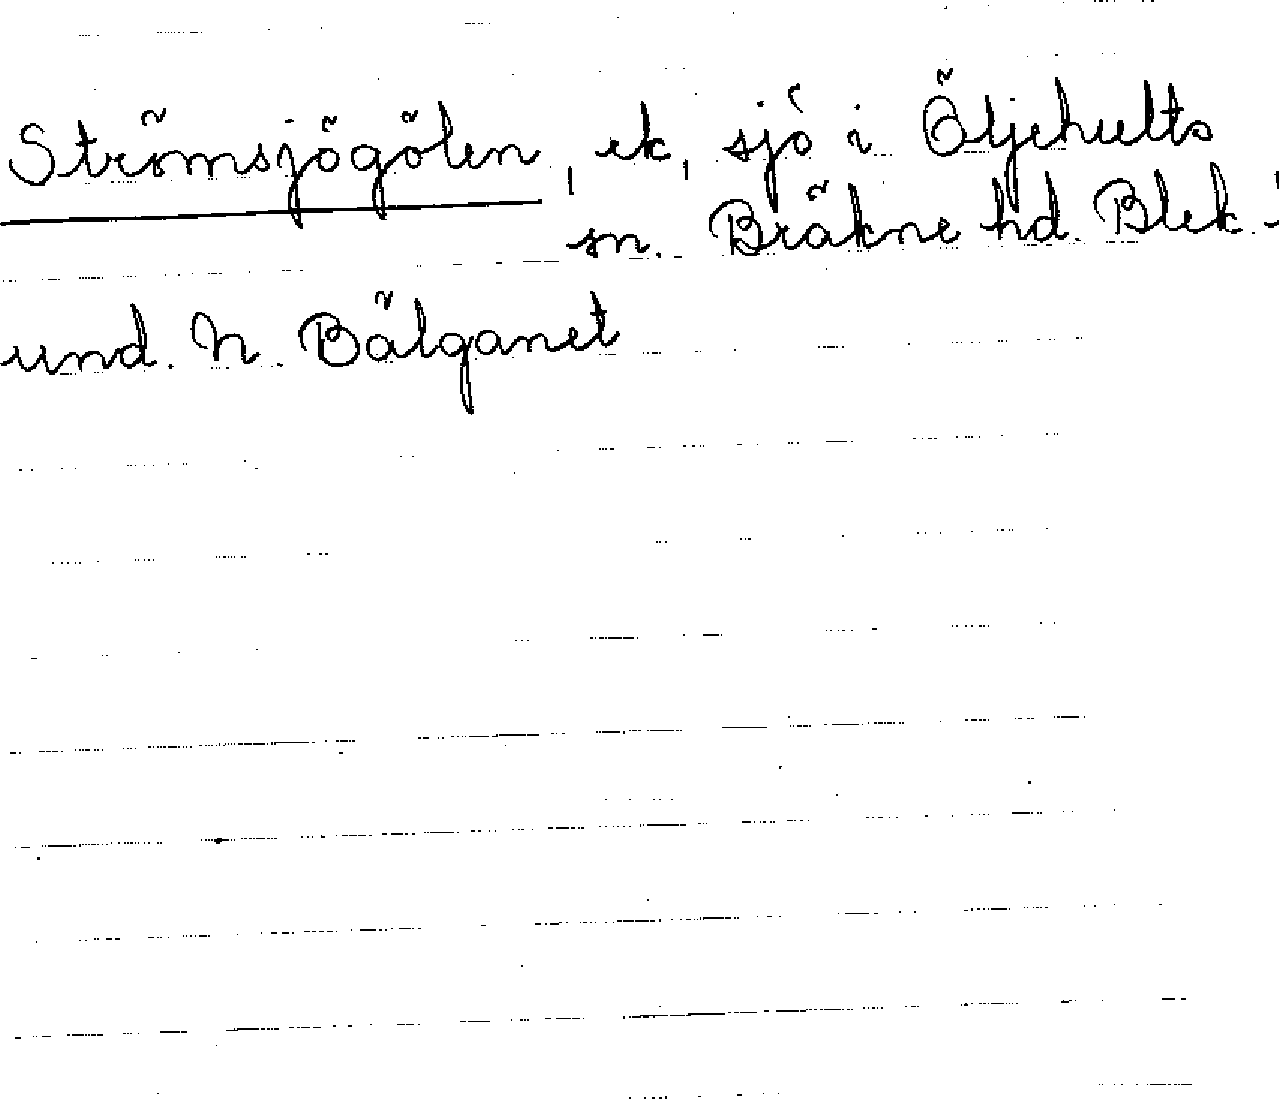 Strömsjögölen, ek, sjö i Öljehults
sn. Bräkne hd. Blek.
und. N. Bälganet